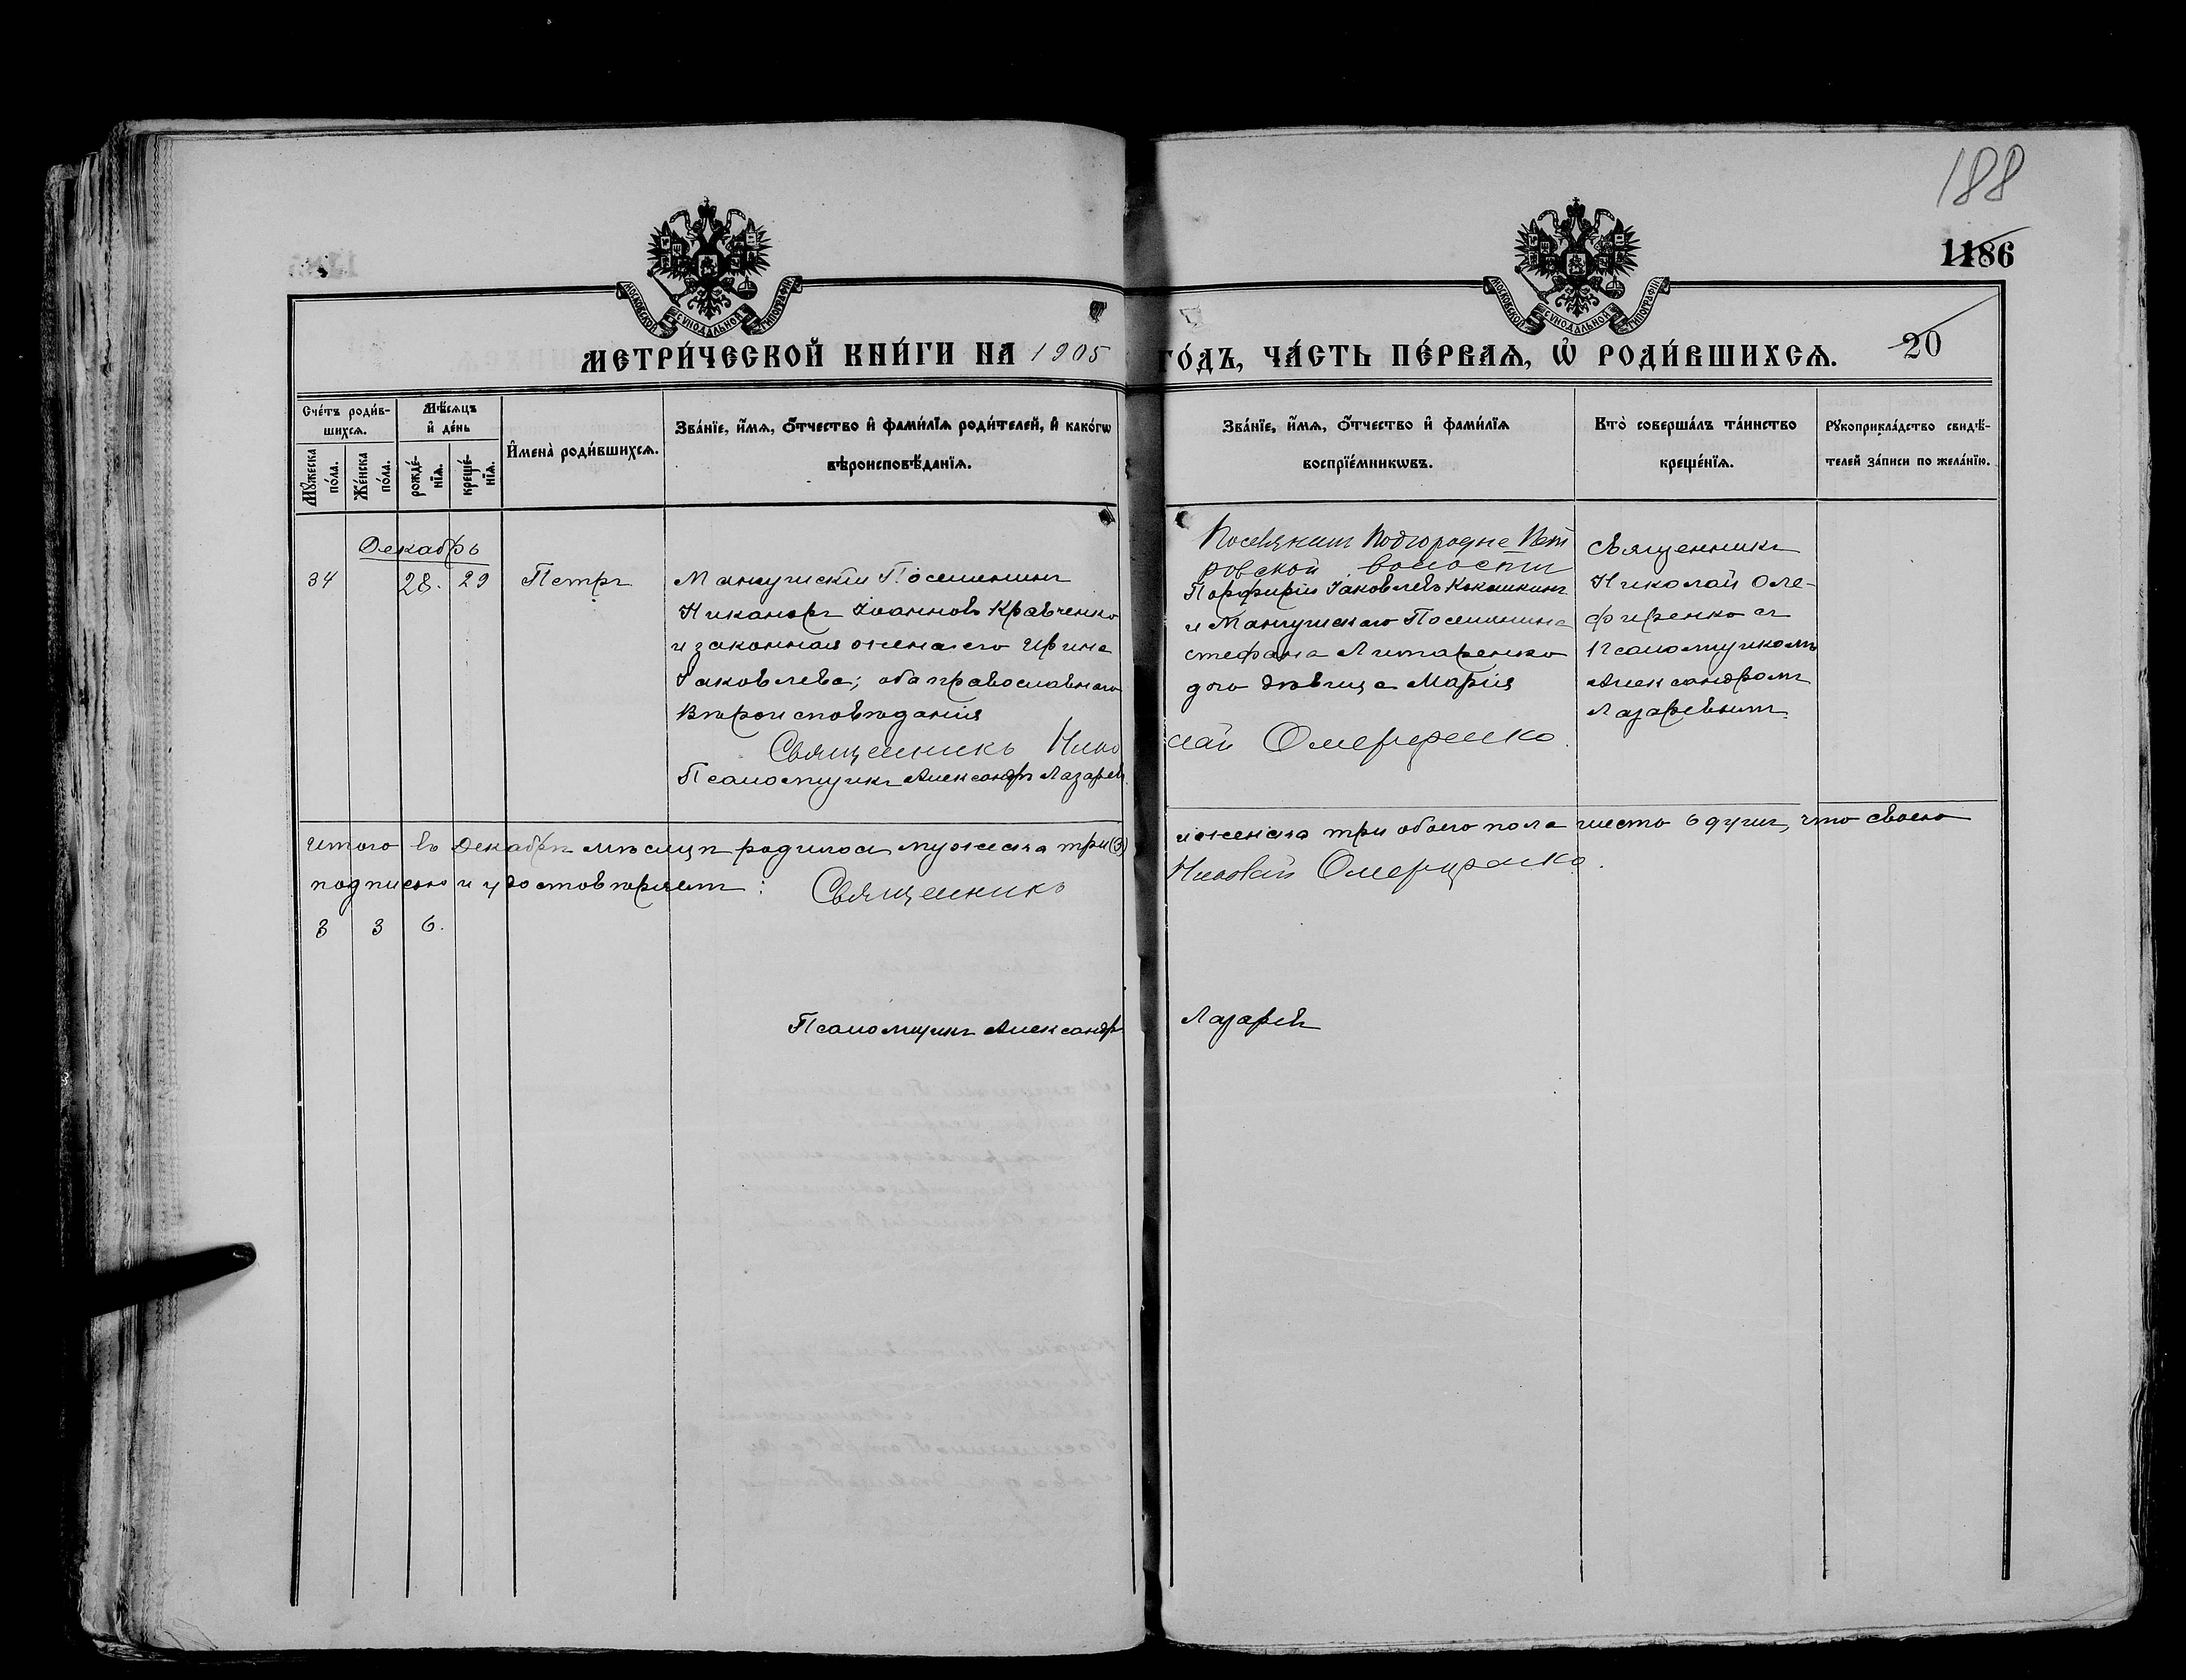 188
1186
МОСКОВСКОЙ СѴНОДАЛЬНОЙ ТИПОГРАФІИ
МОСКОВСКОЙ СѴНОДАЛЬНОЙ ТИПОГРАФІИ
МЕТРИ́ЧЕСКОЙ КНИ́ГИ НА 1905 ГО́ДЪ, ЧА́СТЬ ПЕ́РВАѦ, Ѽ РОДИ́ВШИХСѦ.
20
Сче́тъ роди́в-
шихсѧ.
Мѣ́сѧцъ
и҆ де́нь
Мꙋ́жеска
по́ла.
Же́нска
по́ла.
рожде́-
нїѧ.
креще́-
нїѧ.
И҆мена̀ роди́вшихсѧ.
Зва́нїе, и҆́мѧ, ѻ҆́тчество и҆ фами́лїѧ роди́телей, и҆ како́гѡ
вѣроисповѣ́данїѧ.
Зва́нїе, и҆́мѧ, ѻ҆́тчество и҆ фами́лїѧ
воспрїе́мникѡвъ.
Кто̀ соверша́лъ та́инство
креще́нїѧ.
Рꙋкоприкла́дство свидѣ́-
телей за́писи по жела́нїю.
Декабрь
34 28. 29 Петръ
Мангушскій Поселянинъ
Никаноръ Іоанновъ Кравченко
и законная жена его Ирина
Іаковлева; оба православнаго
вѣроисповѣданія
Священникъ Нико
Псаломщикъ Александръ Лазаревъ.
Поселянинъ Подгородне Пет
ровской волости
Порфирій Іаковлевъ Кокошкинъ
и Мангушскаго Поселянина
Стефана Литаренко
дочь дѣвица Марія
лай Олефиренко.
Священникъ
Николай Оле-
фиренко съ
Псаломщикомъ
Александромъ
Лазаревымъ.
Итого въ Декабрѣ мѣсяцѣ родилось мужеска три (3)
и женска три обоего пола шесть 6 душъ, что своею
подписью и удостовѣряемъ: Священникъ
Николай Олефиренко.
3 3 6.
Псаломщикъ Александръ Лазаревъ